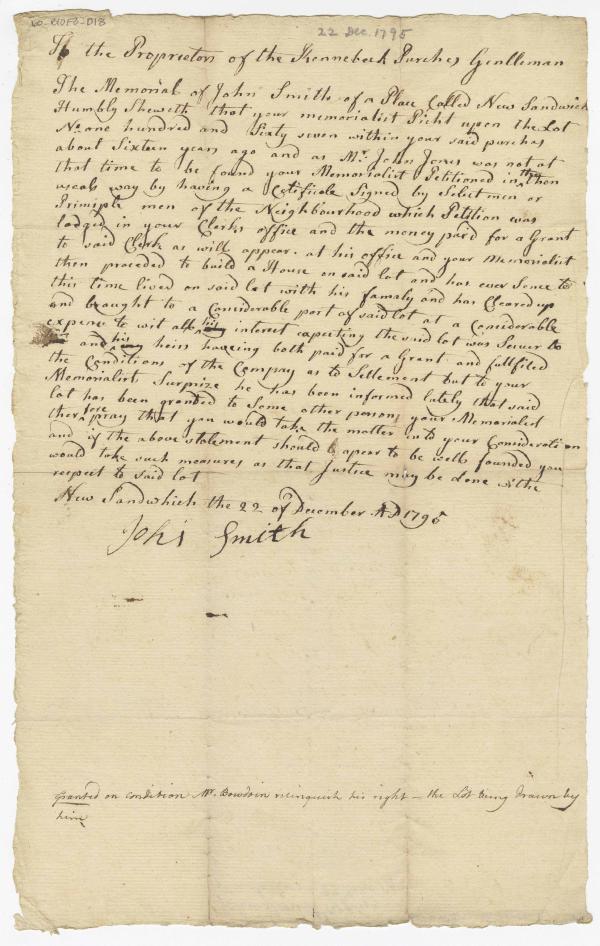 22 Dec. 1795
To the Proprietors of the Kennebeck Purches Gentleman
The Memorial of John Smith of a Place Called New Sandwich
Humbly Sheweth that your memorialist Picht upon the Lot
No. one hundred and Sixty seven within your said purchas
about Sixteen years ago and as Mr. John Jones was not at
that time to be found your Memorialist Petitioned in the then
useals way by haveing a Certificale Signed by Select men or
Principle men of the Neighbourhood which Petition was
lodged in your Clerks office and the money paid for a Grant
to said Clerk as will appear at his office and your Memorialist
then proceded to build a House on said lot and has ever Sence to
this time lived on said lot with his famaly and has Cleared up
and braught to a Considerable part of said lot at a Considerable
expence to wit all his interest expecting the said lot was Secuer to
and his heirs haveing both paid for a Grant and fullfiled
the Conditions of the Compay as to Settlement but to your
Memorialists Surprize he has been informed lately that said
lot has been granted to Some other person your Memorialist
therefore pray that you would take the matter into your Consideration
and if the above statement should apear to be well founded you
would take such measures as that Justice may be done with
respect to said lot
New Sandwhich the 22 of December AD 1795
John Smith
granted on condition Mr. Bowdoin relinquish his right - the Lot being drawn by
him